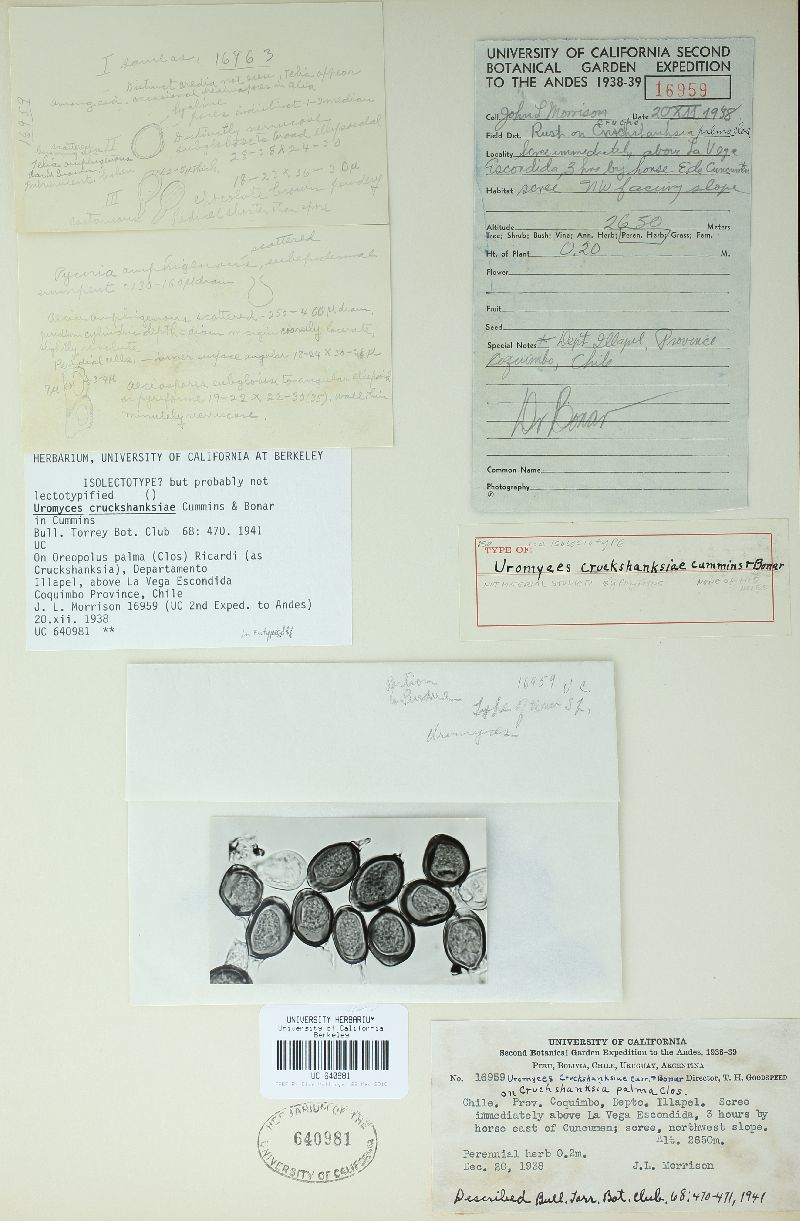 I same as, 16963
Distinct uredia not seen, telia appear
amongecia. occasional uredospores in telia
hyaline
pores indistinct 1-3 median
16959
II
Distinctly verrucose
subglobose to broad ellipsoidal
23-28 x 24-30
Telia amphigenous
dark brown
pulverulent
18-23 x 36-
III
chocolate brown powdery
castaneous
Pedicel shorter than spore
scattered
Pycnia amphigenous, subepidermal
130-160 μ diam
Aecia amphigenous scattered - 250-400 μ diam,
peridium cylindric depth = diam margin coarsely lacerate,
slightly revolute
Peridial cells, - inner surface angular 18-24 x 30-36 μ
7μ 3-4μ
aeciospores subglobose to angular ellipsoid
or pyriform 19-22 x 22-30(35), wall thin
minutely verrucose.
HERBARIUM, UNIVERSITY OF CALIFORNIA AT BERKELEY
ISOLECTOTYPE? but probably not
lectotypified ()
Uromyces cruckshanksiae Cummins & Bonar
in Cummins
Bull. Torrey Bot. Club 68: 470. 1941
UC
On Oreopolus palma (Clos) Ricardi (as
Cruckshanksia), Departamento
Illapel, above La Vega Escondida
Coquimbo Province, Chile
J. L. Morrison 16959 (UC 2nd Exped. to Andes)
20.xii. 1938
UC 640981 **
UNIVERSITY OF CALIFORNIA SECOND
BOTANICAL GARDEN EXPEDITION
TO THE ANDES 1938-39 16959
Coll. John L Morrison Date 20 XII 1938
Field Det. Rust on Cruckshanksia palma Clos
Locality Scree immediately above La Vega
Escondida, 3 hrs by horse E de Cuncumén
Habitat scree NW facing slope
Altitude 2650 Meters
Tree; Shrub; Bush; Vine; Ann. Herb; Peren. Herb; Grass; Fam.
Ht. of Plant 0.20 M.
Flower
Fruit
Seed
Special Notes * Dept Illapel, Province
Coquimbo, Chile
Dr Bonar
Common Name
Photography
TYPE OF: isolectotype
Uromyces cruckshanksiae Cummins & Bonar
NONE OF HIS
NOTES
Portion to Purdue
16959 U C.
Type of new sp.
Uromyces
UNIVERSITY HERBARIUM
University of California
Berkeley
UC 640981
HERBARIUM OF THE
640981
UNIVERSITY OF CALIFORNIA
UNIVERSITY OF CALIFORNIA
Second Botanical Garden Expedition to the Andes, 1938-39
Peru, Bolivia, Chile, Uruguay, Argentina
No. 16959 Uromyces Cruckshanksiae Cum. & Bonar Director, T. H. Goodspeed
on Cruckshanksia palma Clos.
Chile. Prov. Coquimbo, Depto. Illapel. Scree
immediately above La Vega Escondida, 3 hours by
horse east of Cuncumen; scree, northwest slope.
Alt. 2650m.
Perennial herb 0.2m.
Dec. 20, 1938 J.L. Morrison
Described Bull. Torr. Bot. Club, 68: 470-471, 1941